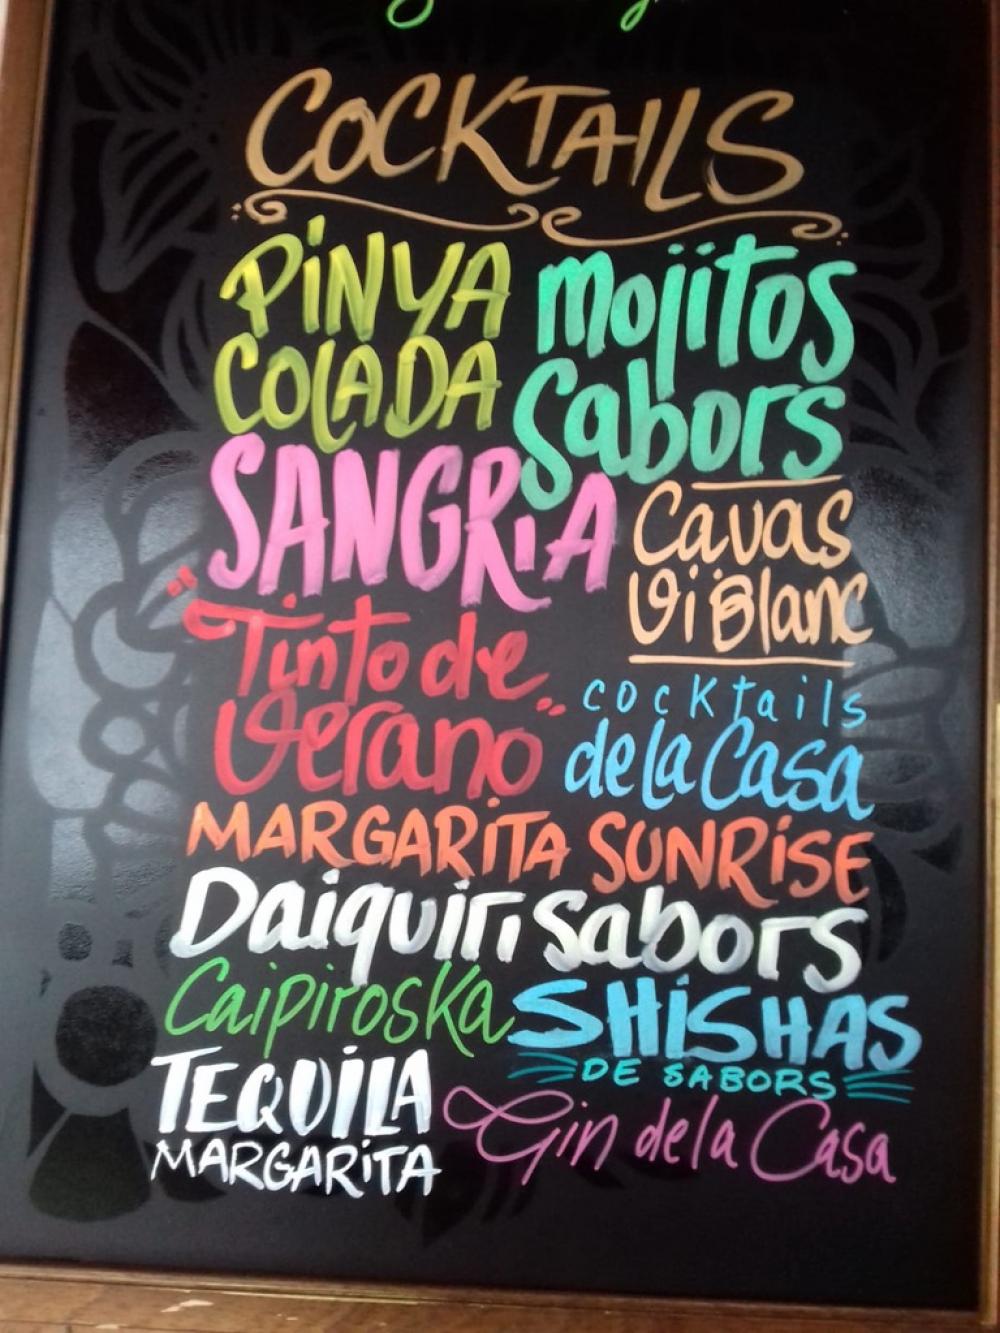 COCKTAILS
PINYA
COLADA
Mojitos
Sabors
SANGRIA
Cavas
Vi Blanc
"Tinto de
Verano"
cocktails
de la Casa
MARGARITA SUNRISE
Daiquiri sabors
Caipiroska
SHISHAS
DE SABORS
TEQUILA
MARGARITA
Gin de la Casa